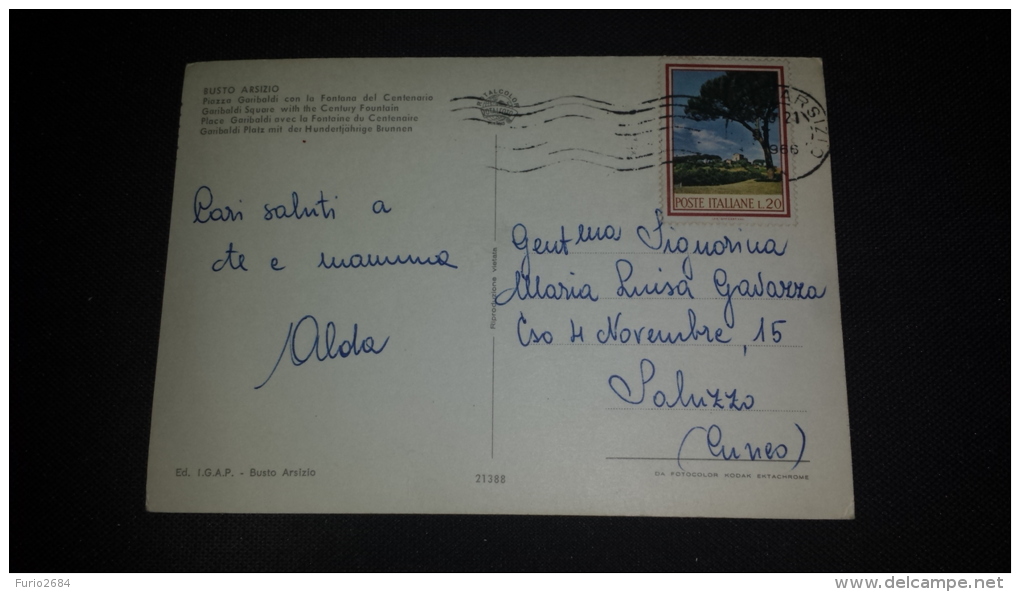 BUSTO ARSIZIO
Piazza Garibaldi con la Fontana del Centenario
Garibaldi Square with the Century Fountain
Place Garibaldi avec la Fontaine du Centenaire
Garibaldi Platz mit der Hundertjährige Brunnen
ITALCOLOR
ARSIZIO
21
966
POSTE ITALIANE L.20
Cari saluti a
te e mamma
Alda
Riproduzione vietata
Gent.ma Signorina
Maria Luisa Gavazza
Cso 4 Novembre, 15
Saluzzo
(Cuneo)
Ed. I.G.A.P. - Busto Arsizio
21388
DA FOTOCOLOR KODAK EKTACHROME
Furio2684
www.delcampe.net